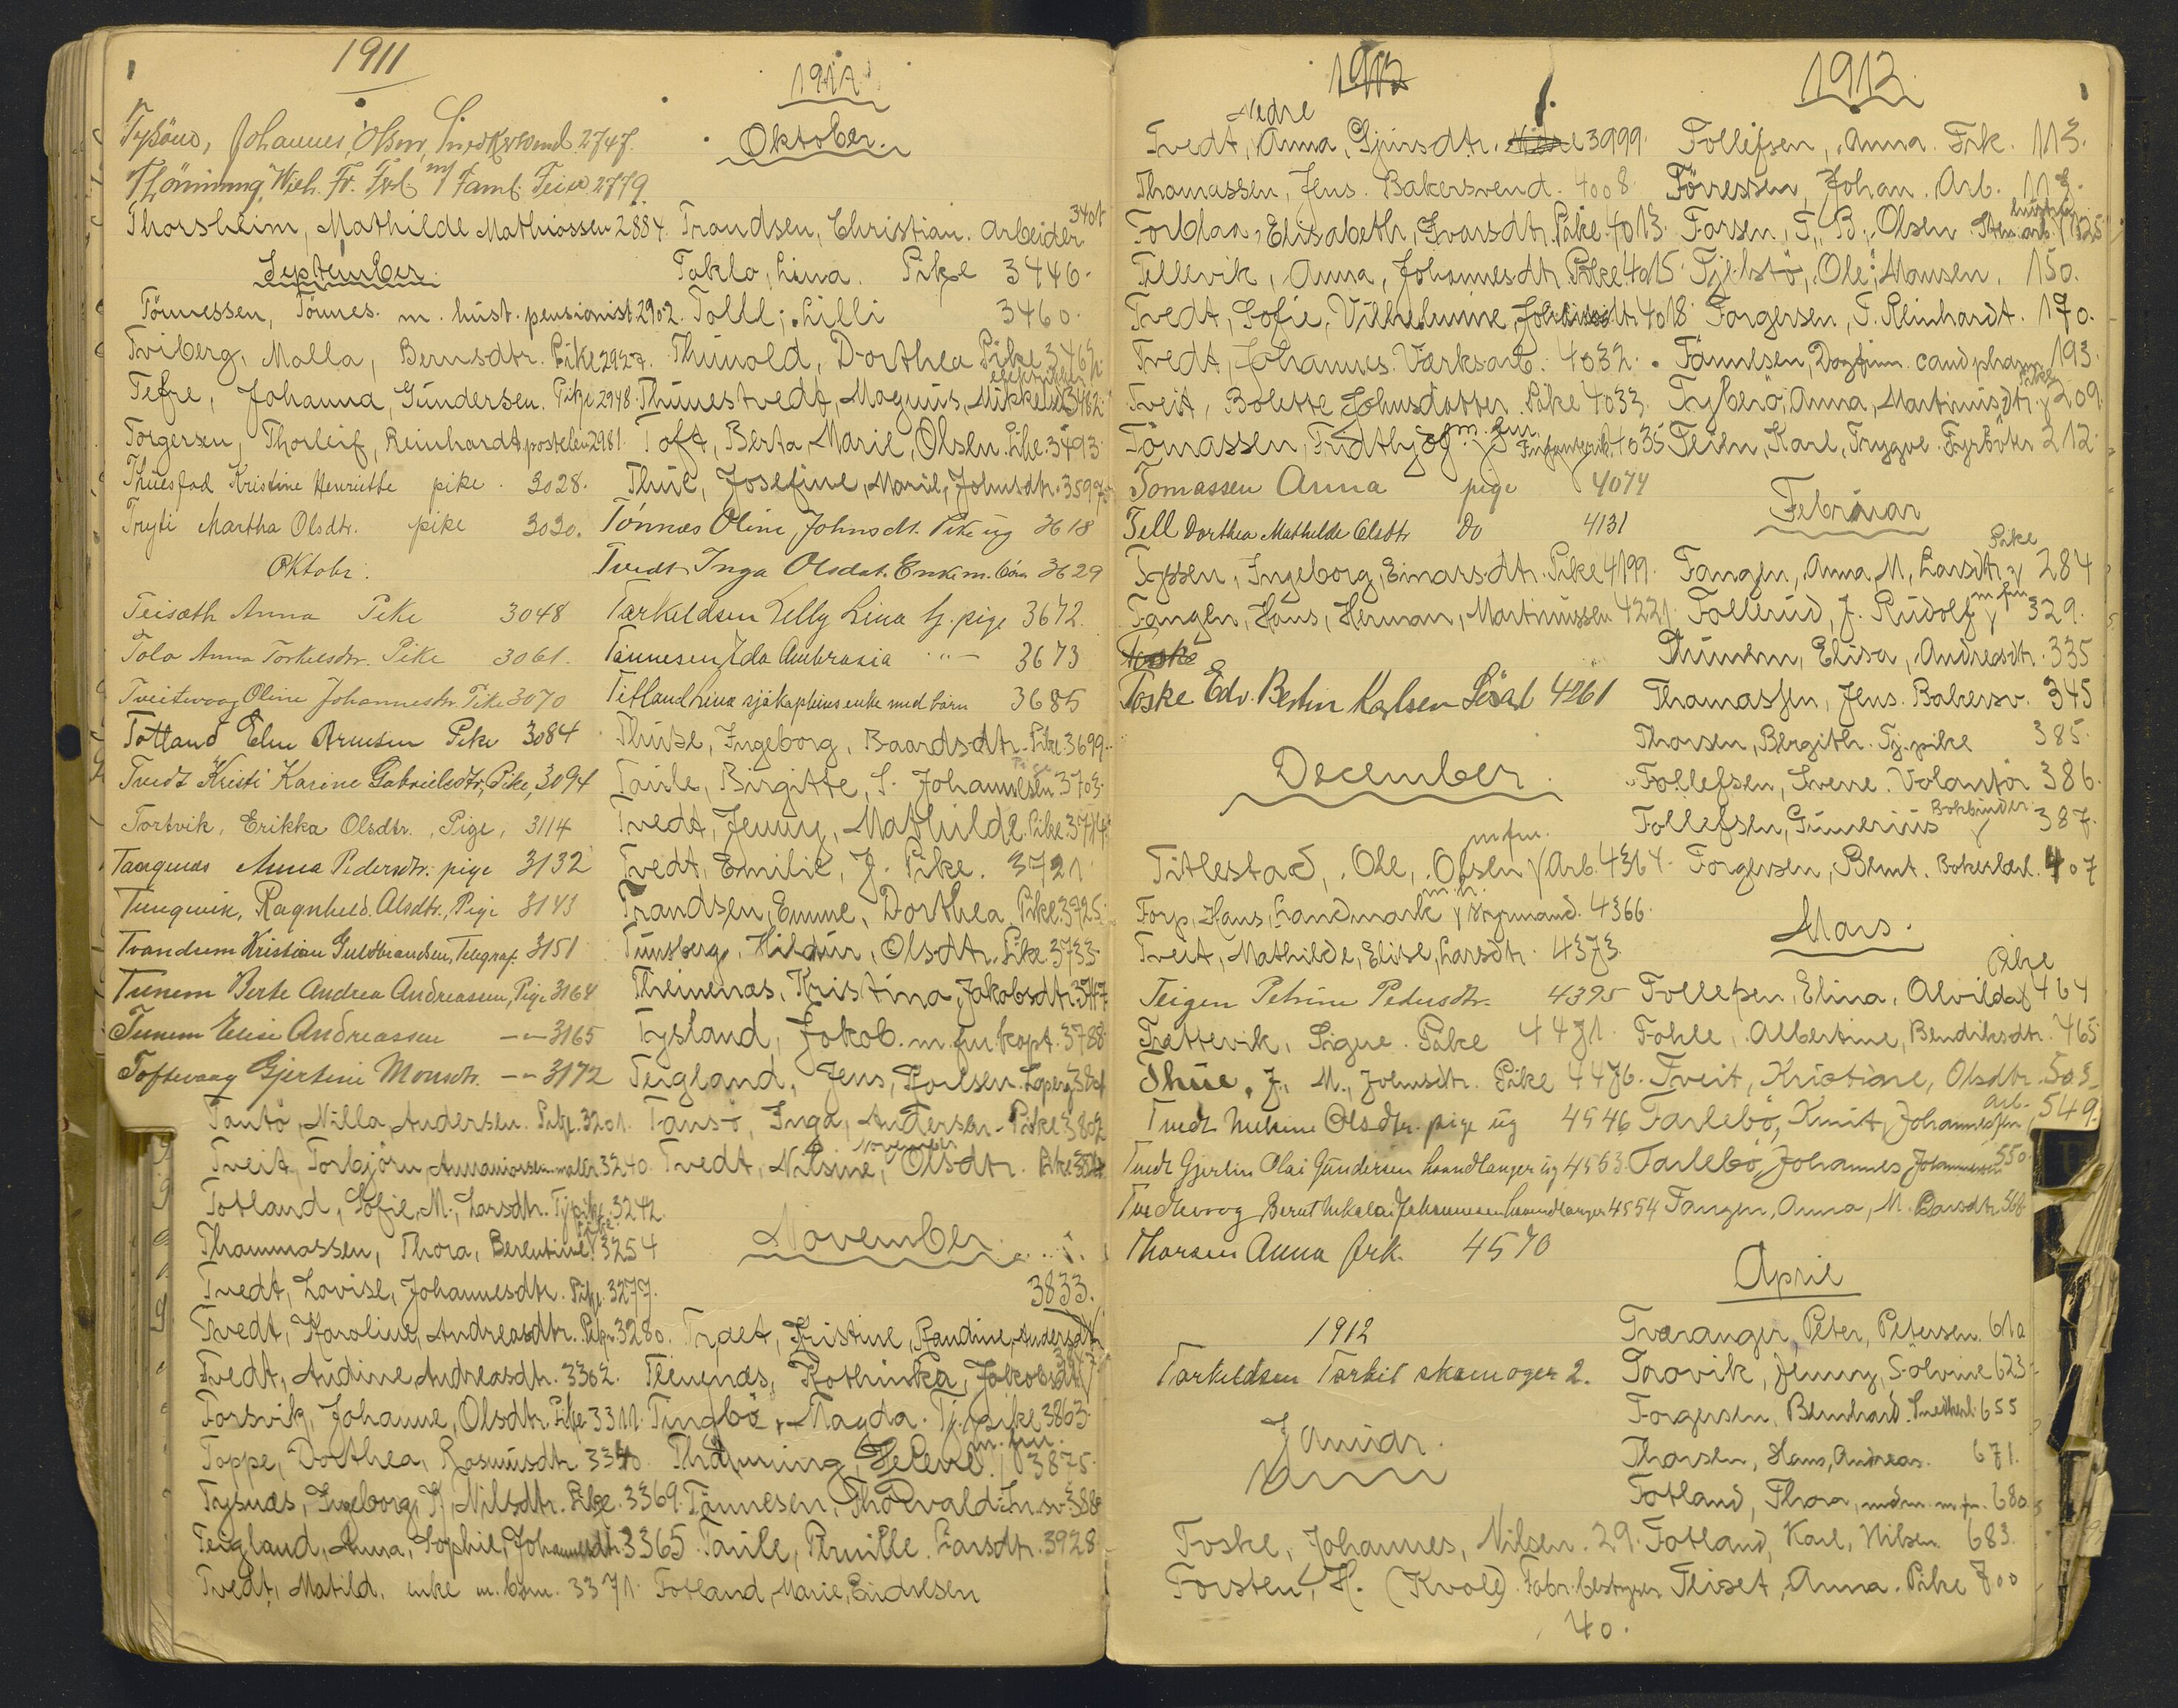 1911
Johannes, Olsen, 2747.
Wilh. Fr. m/ Faml. 2779.
Thorsheim, Mathilde Mathiassen 2884.
September.
Tönnessen, Tönnes. m. hust. pensionist 2902.
Tviberg, Malla, Bernsdtr. Pike 2927.
Tefre, Johanna, Gundersen. Pike 2948.
Torgersen, Thorleif, Reinhardt, postelev 2981.
Kristine Henriette pike. 3028.
Martha Olsdtr. pike 3030.
Oktobr.
Teisæth Anna Pike 3048
Tolo Anna Torkelsdtr. Pike 3061.
Tveitevaag Oline Johannesdtr. Pike 3070
Totland Elen Arnesen Pike 3084
Tvedt Kristi Karine Gabrielsdtr, Pike, 3094
Tortvik, Erikka Olsdtr., Pige, 3114
Taaqnæs Anna Pedersdtr. pige 3132
Ragnhild Olsdtr., Pige 3143
Tvandrem Kristian Guldbrandsen, Telegraf. 3151
Tunem Berte Andrea Andreassen, Pige 3164
Tunem Elise Andreassen -"- 3165
Toftevaag Gjertine Monsdtr. -"- 3172
Tautö, Nilla, Andersen. Pike. 3201.
Tveit, Torbjörn, maler 3240.
Totland, Sofie, M., Larsdtr. Tj.pike. 3242.
Pike
Thammassen, Thora, Berentine 3254
Tvedt, Lovise, Johannesdtr. Pike. 3277.
Tvedt, Karoline, Andreasdtr. Pike 3280.
Tvedt, Andine, Andreasdtr. 3302.
Torsvik, Johanne, Olsdtr. Pike 3311.
Toppe, Dorthea, Rasmusdtr. 3340.
Tysnæs, Ingeborg, Nilsdtr. Pike. 3369.
Teigland, Anna, Sophie, Johannesdtr. 3365.
Tvedt, Matild, enke m. börn. 3371.
1911
Oktober.
Trandsen, Christian. Arbeider 3401
Taklo, Lina. Pike 3446.
Toll, Lilli 3460.
Thunold, Dorthea Pike
Thunestvedt, Magnus, Mikkelsen 3482.
Toft, Berta, Marie, Olsen. Pike. 3493.
Thue, Josefine, Marie, Johnsdtr. 3597.
Tönnæs Oline, Johnsdt. Pike ug 3618
Tvedt Inga Olsdat. Enke m. börn 3629
Tarkeldsen Lelly Lina tj. pige 3672.
Tönnesen, Ida Ambrasia -"- 3673
Titland Lina sjökapteins enke med börn 3685
Thuse, Ingeborg, Baardsdtr. Pike 3699.
Taule, Birgitte, S. Johannesen 3703.
Tvedt, Jenny, Mathilde Pike 3714.
Tvedt, Emilie, J. Pike. 3721
Trandsen, Emme, Dorthea Pike. 3725.
Tunsberg, Hildur, Olsdtr. Pike. 3733.
Kristina, Jakobsdtr. 3747.
Tysland, Jakob. m. fru kapt. 3788
Teigland, Jens, Poulsen.
Tansö, Inga, Andersen. Pike 3802
November
Tvedt, Nilsine, Olsdtr. Pike
November
3833.
Traet, Kristine, Randine, Andersdtr.
Teienæs, Jakobsdtr.
Tingbö, Magda. Tj.pike 3863.
m. fru.
Thönning, Helene. 3875.
Tönnesen, Thorvald. Sn.sv. 3880
Taule, Pernille. Larsdtr. 3928
Totland, Marie, Endresen
1912
Nedre
Tvedt, Anna, Gjersdtr. 3999.
Thomassen, Jens. Bakersvend. 4008.
Torblaa, Elisabeth, Ivarsdtr. Pike. 4013.
Tellevik, Anna, Johannesdtr. Pike. 4015.
Tvedt, Sofie, Vilhelmine, 4018.
Tvedt, Johannes. Værksarb. 4032.
Tveit, Bolette Johnsdatter. Pike 4033.
Tömassen, Fridthjof m. fru 4035
Tomassen Anna pige 4074
Tell Dorthea Mathilde Olsdtr do 4131
Tossen, Ingeborg, Einarsdtr. Pike 4199.
Tangen, Hans, Herman, Martinussen 4221.
Toske
Toske Edv. Bertin Karlsen 4261
December.
m fru.
Titlestad, Ole, Olsen Arb. 4364.
m. h.
Torp, Hans, Landmark Styrmand. 4366.
Tveit, Mathilde, Elise, Larsdtr. 4373.
Teigen Petrine Pedersdtr. 4395
Tættevik, Signe. Pike 4471.
Thue, J., M., Johnsdtr. Pike 4476.
Tvedt Olsdtr. pige ug 4546
Tvedt Gjertin Olai Gundersen haandlanger ug 4563.
Tvedtevaag Bernt Nikolai Johannesen haandlanger 4554
Thorsen Anna frk. 4570
1912
Tarkeldsen Tarkil skomager 2.
Januar.
Toske, Johannes, Nilsen. 29.
Torsten, H. (Kvale). Fabr. bestyrer
40.
1912
Tollefsen, Anna. Frk. 113.
Törressen, Johan. Arb.
Torsen, T., B., Olsen. 125
Tjelstö, Ole, Monsen. 150.
Torgersen, T. Reinhardt. 170.
Tönnesen, Dagfinn. cand pharm. 193.
Pike
Tyberö, Anna, Martinusdtr. 209.
Teien, Karl, Trygve. Fyrböter 212.
Februar
Pike
Tangen, Anna, M, Larsdtr. 284
m fru
Tollerud, J. Rudolf 329.
Thunem, Elisa, Andreasdtr. 335
Thomassen, Jens. Bakersv. 345
Thorsen, Bergith. Tj.pike 385.
Tollefsen, Sverre. Volontör 386.
Bokbinder
Tollefsen, Gunerius 387.
Torgersen, Bernt. 407
Mars.
Pike
Tollefsen, Elina, Alvilda 464
Tohle, Albertine, Bendiksdtr. 465
Tveit, Kristiane, Olsdtr. 505.
arb.
Tarlebö, Knut, Johannessen 549.
Tarlebö, Johannes, Johannessen 550.
Tangen, Anna, M. Larsdtr.
April
Tværanger, Peter, Petersen. 610
Trovik, Jenny, Sölvine 623.
Torgersen, Bernhard. 655
Thorsen, Hans, Andreas. 671.
Totland, Thora, m fr. 680.
Totland, Karl, Nilsen. 683.
Tliset, Anna. Pike 700